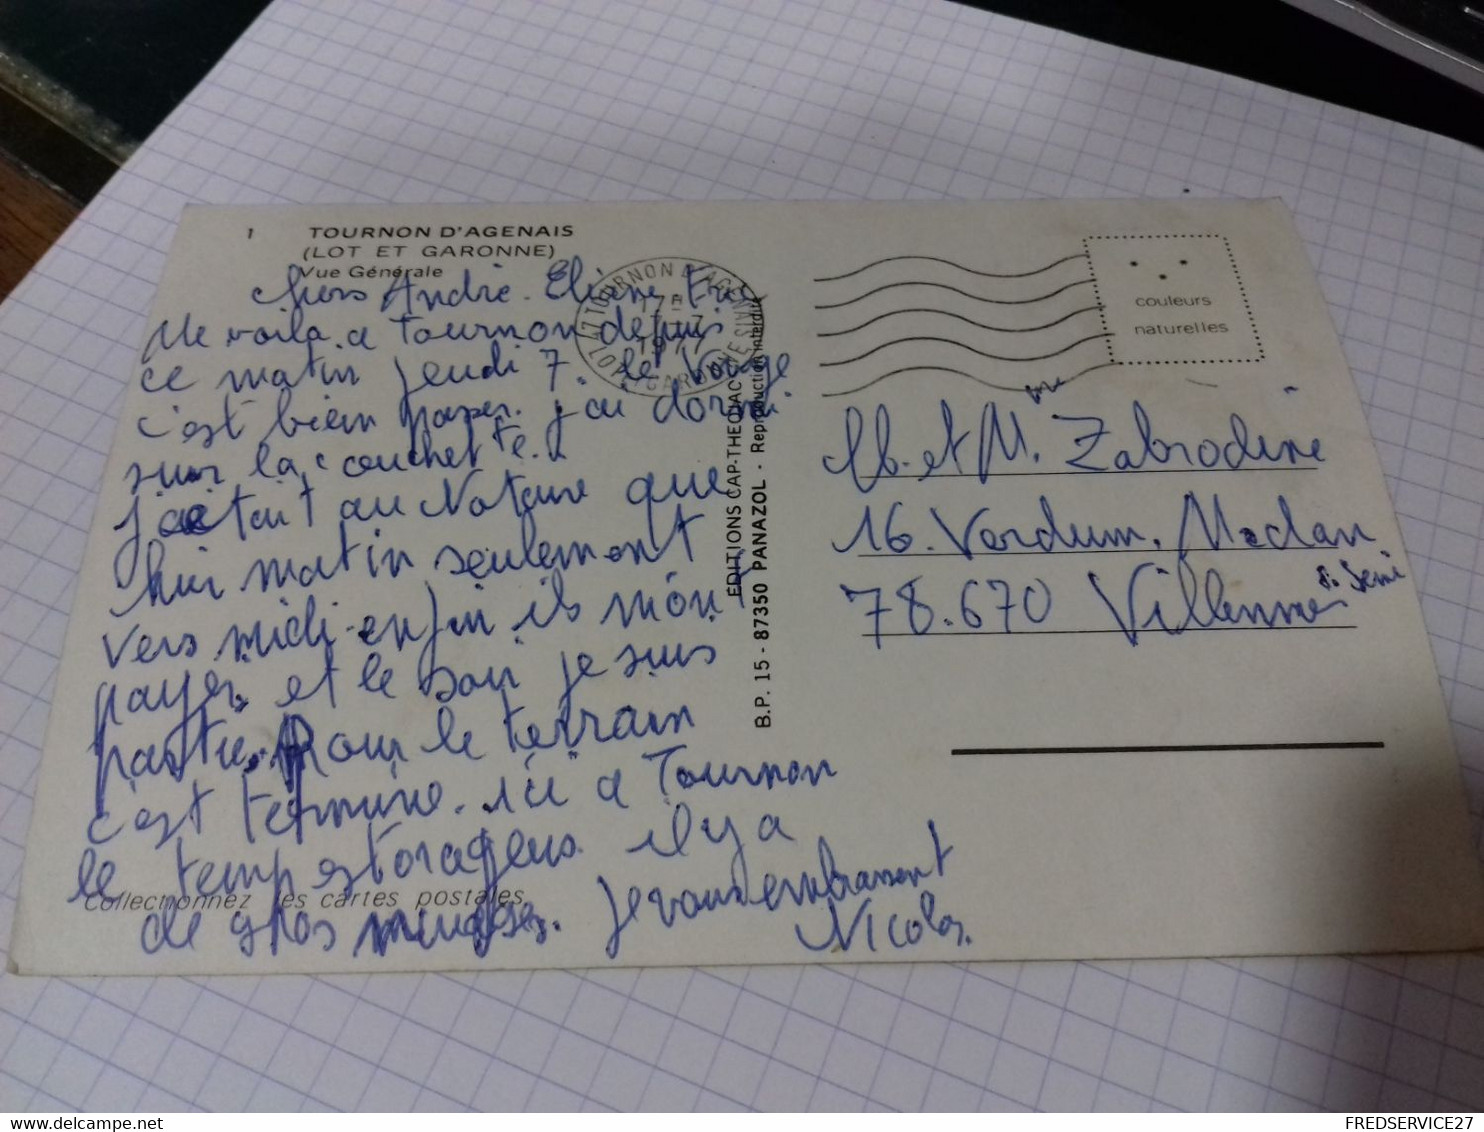 1 TOURNON D'AGENAIS
(LOT ET GARONNE)
Vue Générale
chers André. Eliane,
Me voila. a Tournon depuis
ce matin jeudi 7. le voyage
c'est bien passer. j'ai dormi
sur la couchette.
j'aetait au Notaire que
hier matin seulement
vers midi. enfin ils m'on
payer. et le soir je suis
partie. Pour le terrain
c'est terminé. ici a Tournon
le temp est orageus. il y a
de gros nuages. je vous embrassent
Nicolas.
Collectionnez les cartes postales.
47 TOURNON D'AGENAIS
LOT ET GARONNE
1977
EDITIONS CAP-THEOJAC
B.P. 15 - 87350 PANAZOL - Reproduction interdite
couleurs
naturelles
et M. Zabrodine
16. Verdun. Medan
78.670 Villennes
s. Seine
FREDSERVICE27